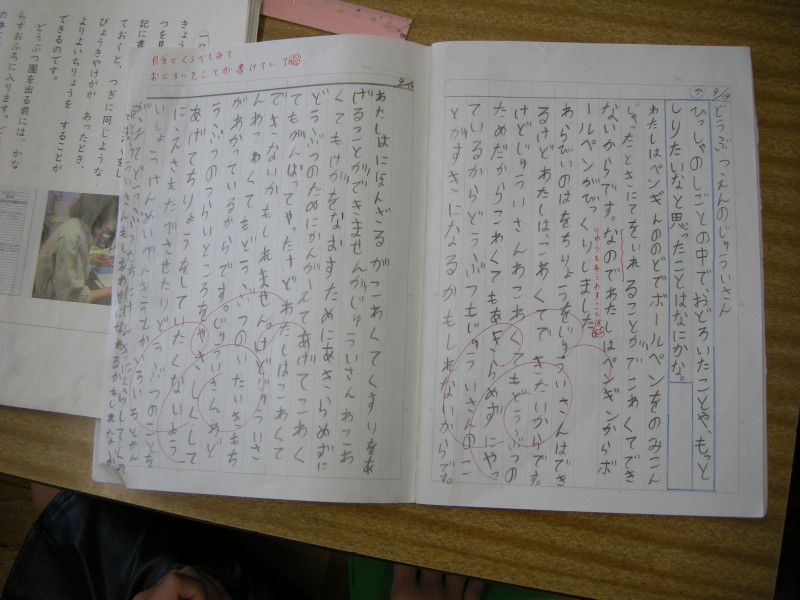 9/14
どうぶつえんのじゅういさん
か
ひっしゃのしごとの中で、おどろいたことや、もっと
しりたいなと思ったことはなにかな。
わたしはペンギんののどでボールペンをのみこん
じゃったときにてをいれることがでこあくてでき
ないからです。なのであたしはペンギンからボ
りゆうをあらわすことば
ールペンがびっくりしました。
あらびいのはをちりょうをじゅういさんはでき
るけどあたしは、こあくてできたいからです。
けどじゅういさんわこあくてもどうぶつの
ためだからこわくてもあきらめずにやっ
ているからどうぶつもじゅういさんのこ
とがすきになるかもしれないからです。
自分とくらべてみて
おどろいたことが書けていて
あたしはにほんざるがこわくてくすりをあ
げることができませんがじゅういさんわこあ
くてもけがをなおすためにあきらめずに
どうぶつのためにかんがえてあげてこわく
てもがんばってやったけどあたしはこあくて
できないかもしれません。けどじゅういさ
んわこわくてもどうぶつのたいきもち
がわかっているからです。じゅういさんわど
うぶつのつらいところをやさしくして
あげてちりょうをしていたくないよう
にえさをたべさせたりどうぶつのことを
いっしょうけんめい
きょう
記に書
ておくと、つぎに同じような
びょうきやけがが あったとき、
よりよいちりょうを することが
できるのです。
どうぶつ園を出る前には、かな
らずおふろに入ります。